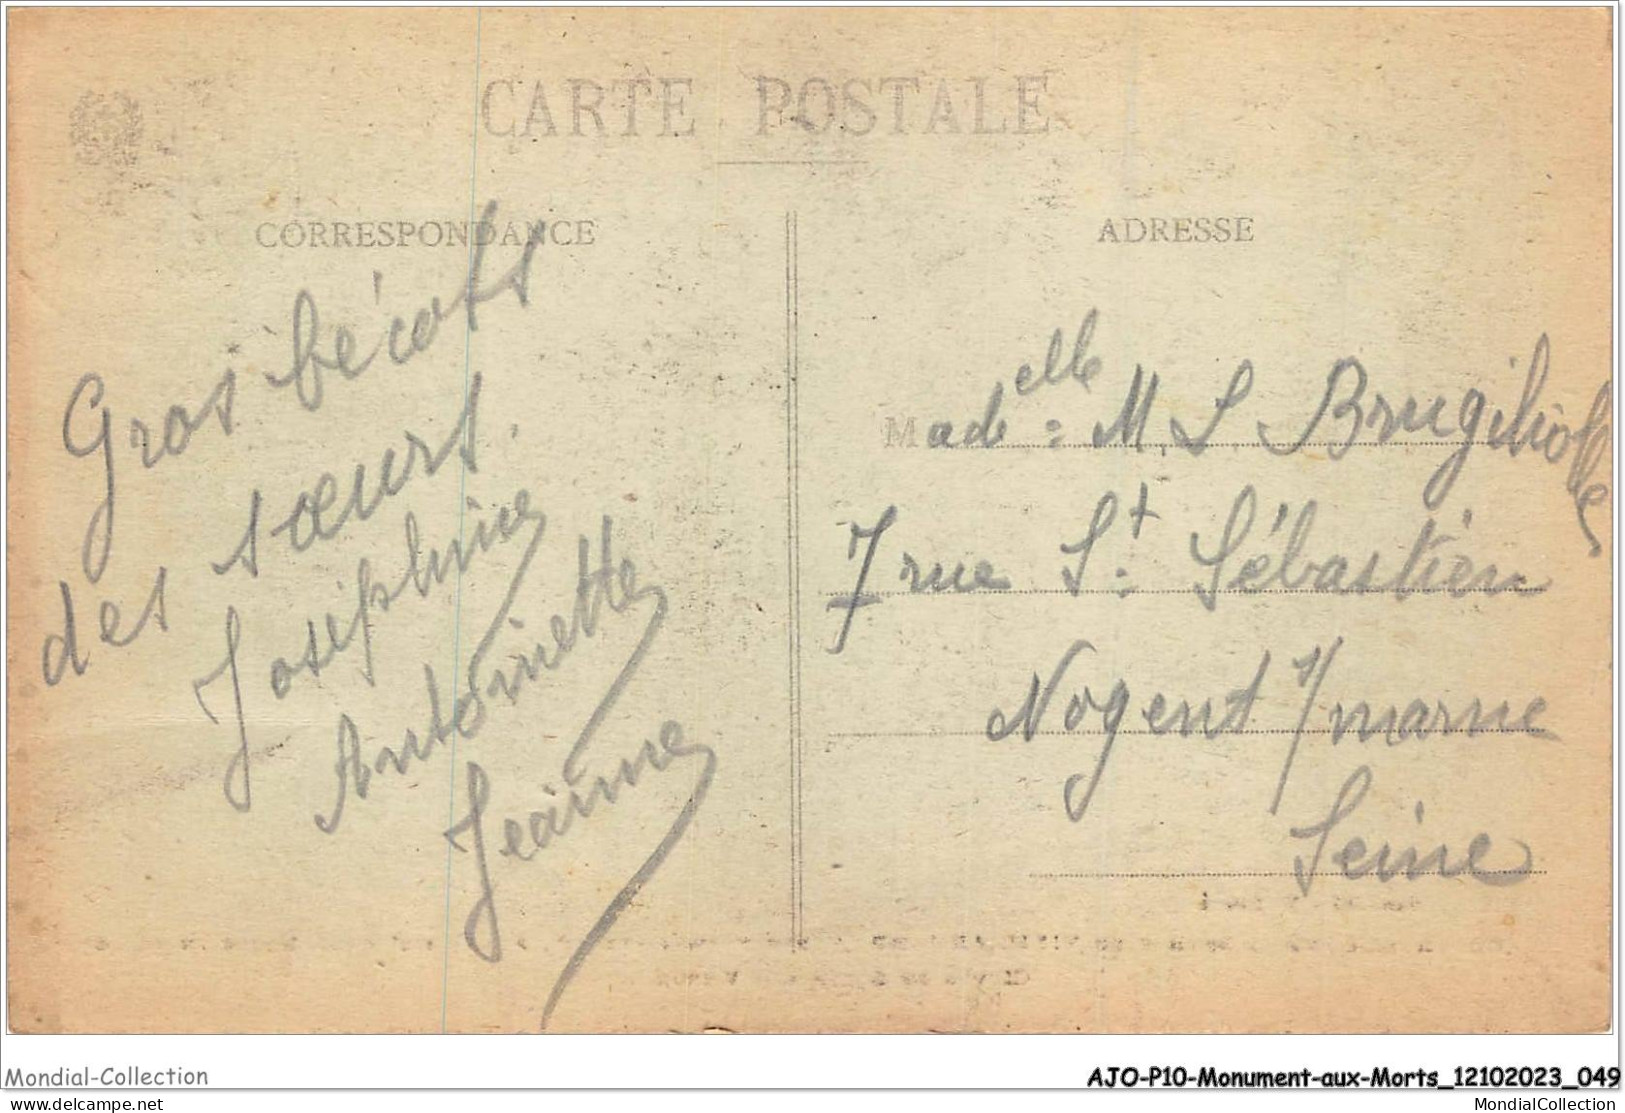 CARTE POSTALE
CORRESPONDANCE
ADRESSE
Gros bécots
des sœurs.
Joséphine
Antoinette
Jeanne
Madelle: M. L Brugiliolle
7 rue St: Sébastien
Nogent s/marne
Seine
Mondial-Collection
AJO-P10-Monument-aux-Morts_12102023_049
delcampe.net
MondialCollection